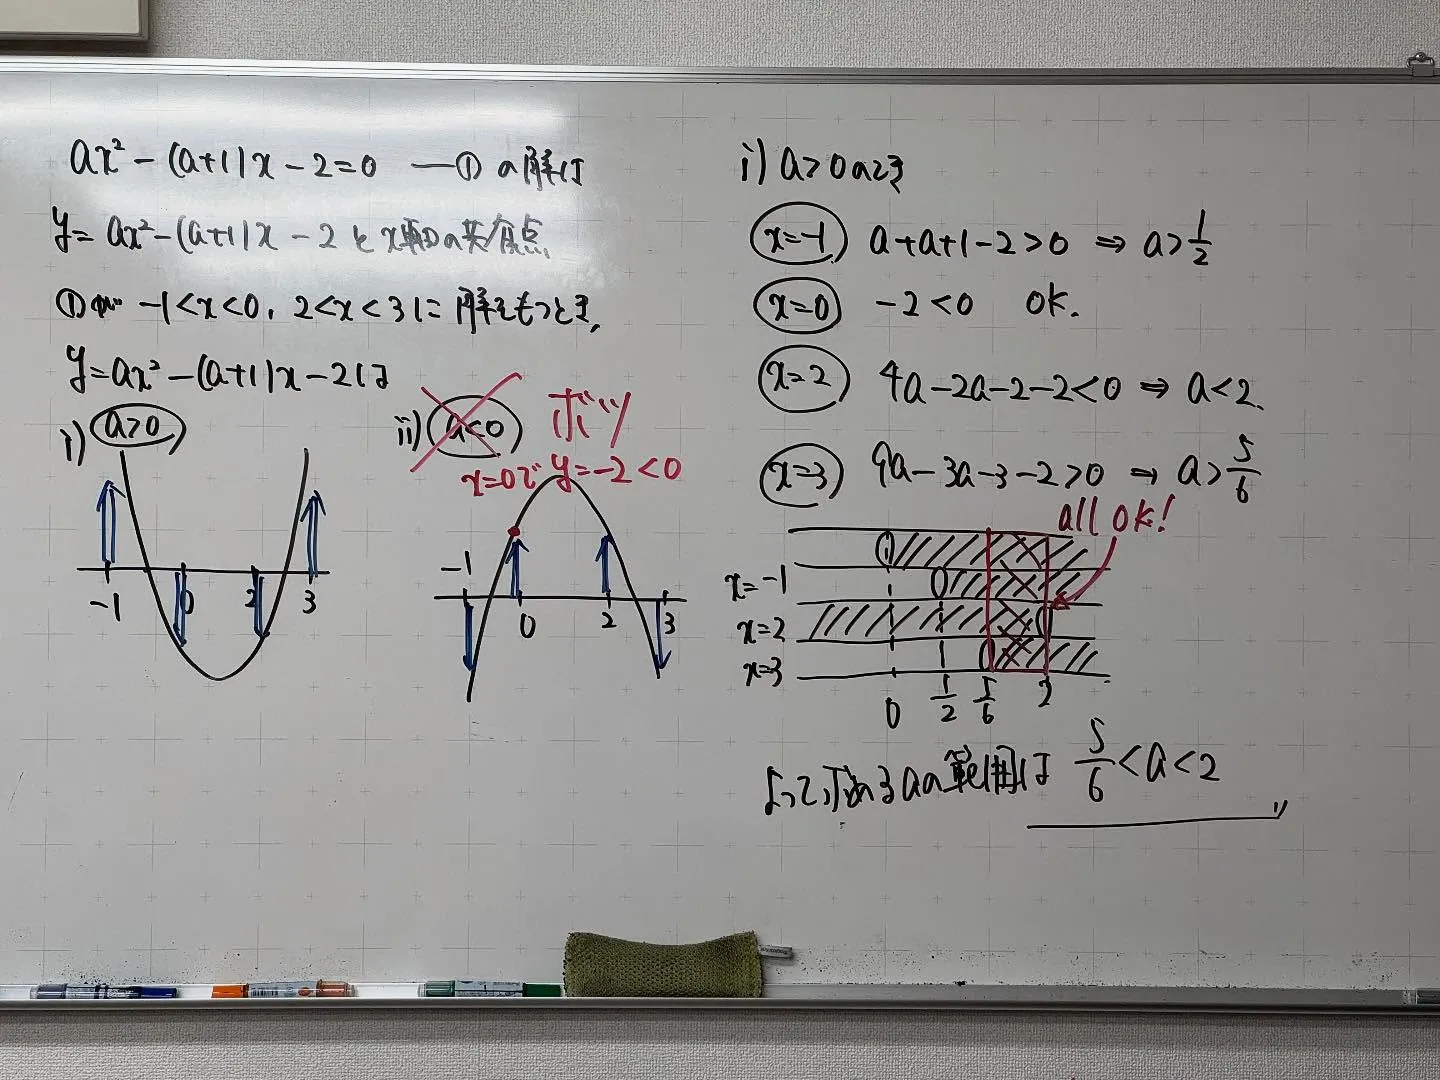 ax² - (a+1)x - 2 = 0 ―① の解は
y = ax² - (a+1)x - 2 と x軸の共有点
①が -1 < x < 0, 2 < x < 3 に 解をもつとき,
y = ax² - (a+1)x - 2 は
i) a>0
-1 0 2 3
ii) a<0 ボツ
x=0で y=-2<0
-1 0 2 3
i) a>0のとき
x=-1 a+a+1-2>0 ⇒ a>1/2
x=0 -2<0 OK.
x=2 4a-2a-2-2<0 ⇒ a<2.
x=3 9a-3a-3-2>0 ⇒ a>5/6
all ok!
x=-1
x=2
x=3
0 1/2 5/6 2
よって求めるaの範囲は 5/6<a<2